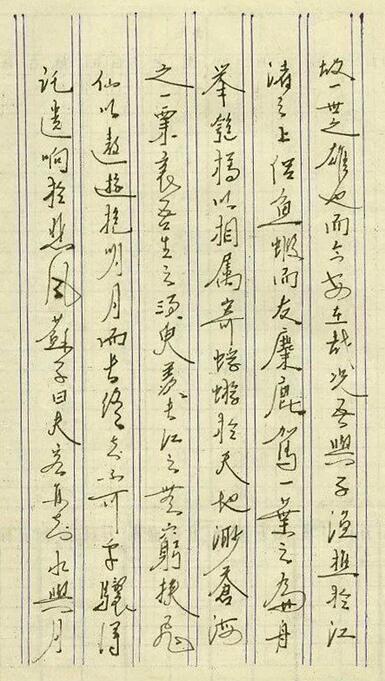 故一世之雄也而今安在哉况吾與子漁樵於江
渚之上侣魚蝦而友麋鹿駕一葉之扁舟
举匏樽以相属寄蜉蝣於天地渺滄海
之一粟哀吾生之須臾羡长江之無窮挟飛
仙以遨遊抱明月而长终知不可乎驟得
託遺响於悲风蘇子曰夫客知夫水與月